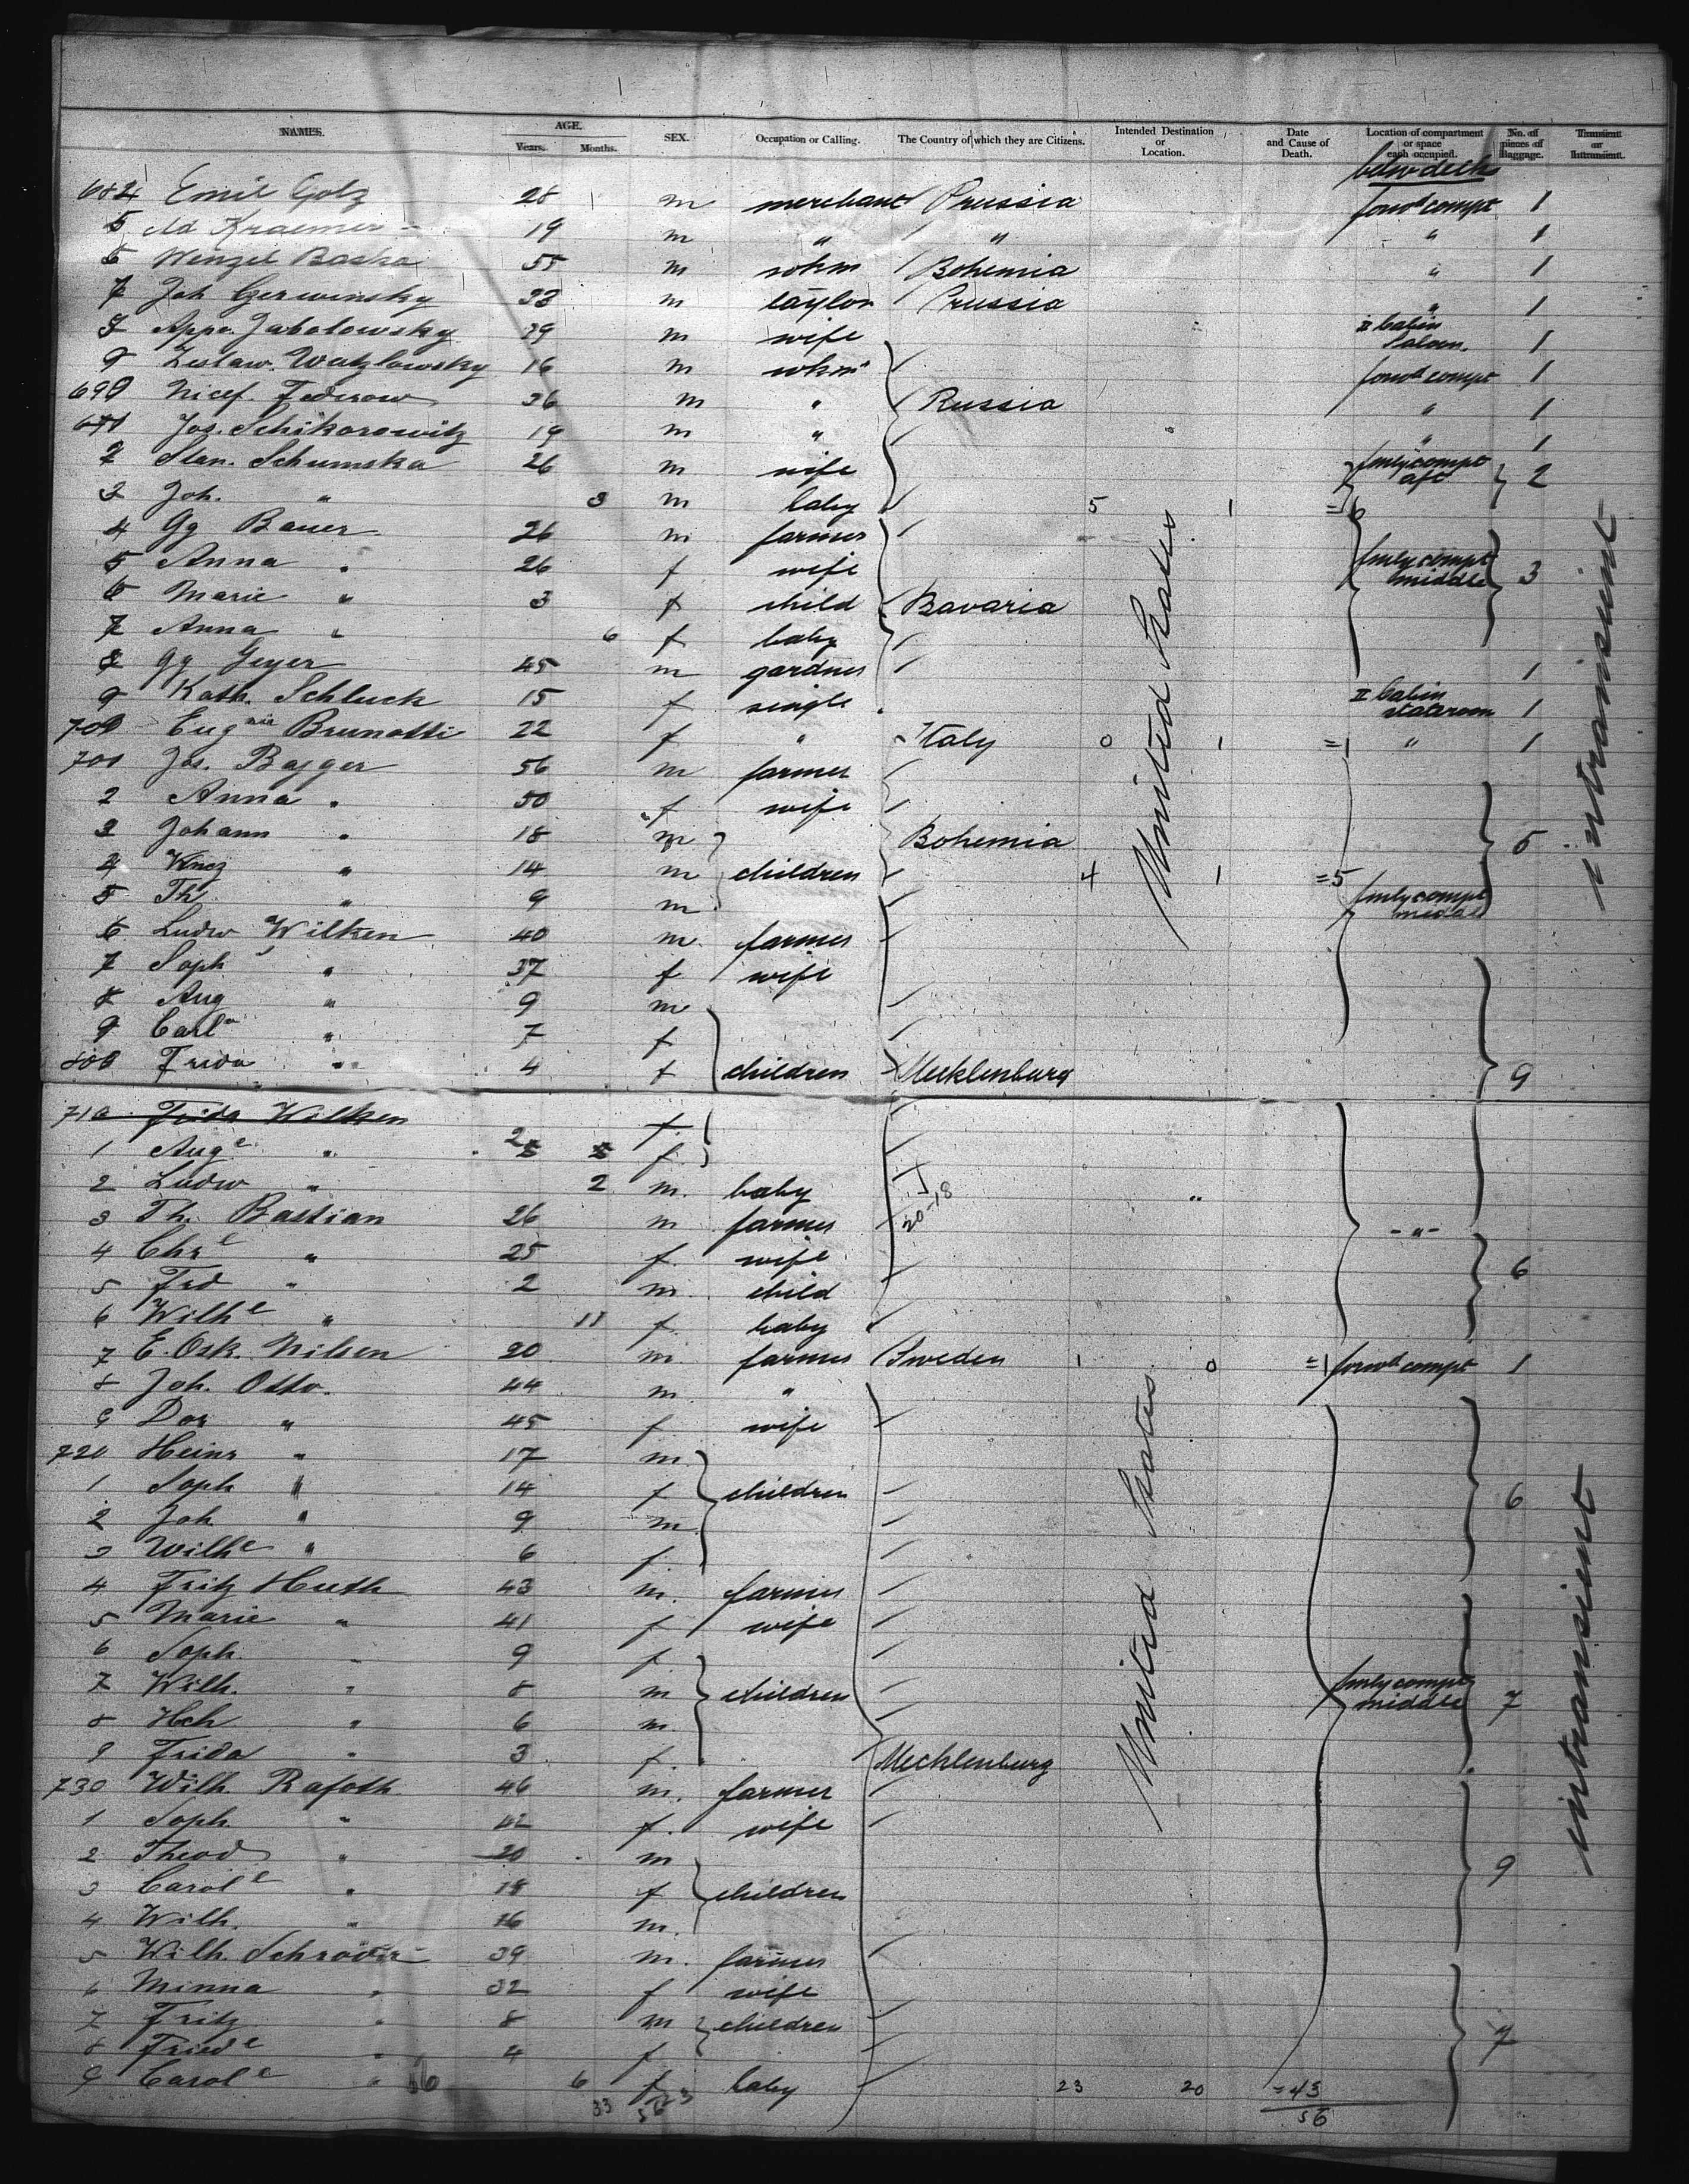 NAMES. AGE. Years. Months. SEX. Occupation or Calling. The Country of which they are Citizens. Intended Destination or Location. Date and Cause of Death. Location of compartment or space each occupied. No. of pieces of Baggage. Transient or Intransient.
below deck
684 Emil Golz 28 m merchant Prussia forwd compt 1
5 Ad Kraemer 19 m " " " 1
6 Wenzel Baska 55 m Bohemia " 1
7 Joh Czerwinsky 33 m taylor Prussia " 1
8 Appo. Jabolowsky 39 m wife II Cabin Saloon. 1
9 Zeslaw. Watzlawsky 16 m forwd compt 1
690 Nicef. Federow 36 m " Russia " 1
691 Jos. Schikorowitz 19 m " " 1
2 Stan. Schumska 26 m wife fmly compt aft 2
3 Joh. " 3 m baby 5 1 =6
4 Gg Bauer 26 m farmer
5 Anna " 26 f wife fmly compt middle 3
6 Marie " 3 f child Bavaria
7 Anna " 6 f baby
8 Gg Geyer 45 m gardner 1
9 Kath. Schluck 15 f single II Cabin stateroom 1
700 Eugnie Brunotti 22 f " Italy 0 1 =1 " 1
701 Jos. Bagger 56 m farmer
2 Anna " 50 f wife
3 Johann " 18 m Bohemia 5
4 " 14 m children 4 1 =5
5 Th " 9 m fmly compt middle
6 Ludw Wilken 40 m farmer
7 Soph " 37 f wife
8 Aug " 9 m
9 Carla " 7 f
800 Frida " 4 f children Mecklenburg 9
United States
intransient
710 Frida Wilken f
1 Auge " 2 f
2 Ludw " 2 m. baby "
3 Th. Bastian 26 m farmer 20-18 -"-
4 Chre " 25 f wife 6
5 Frd " 2 m. child
6 Wilhe " 11 f baby
7 E. Osk. Nilsen 20 m. farmer Sweden 1 0 =1 forwd compt 1
8 Joh. Otto. 44 m "
9 Dor " 45 f wife
720 Heinr " 17 m.
1 Soph " 14 f children 6
2 Joh " 9 m
3 Wilhe " 6 f
4 Fritz Huth 43 m. farmer
5 Marie " 41 f wife
6 Soph. " 9 f
7 Wilh. " 8 m children fmly compt middle 7
8 Hch " 6 m
9 Frida " 3 f. Mecklenburg
730 Wilh. Rafoth 46 m. farmer
1 Soph " 42 f. wife
2 Theod " 20 m 9
3 Carole " 18 f children
4 Wilh. " 16 m.
5 Wilh. Schröder 39 m. farmer
6 Minna " 32 f wife
7 Fritz " 8 m children 7
8 Friede " 4 f
9 Carole " 56 6 f baby 23 20 =43
33 56 23 56
United States
intransient